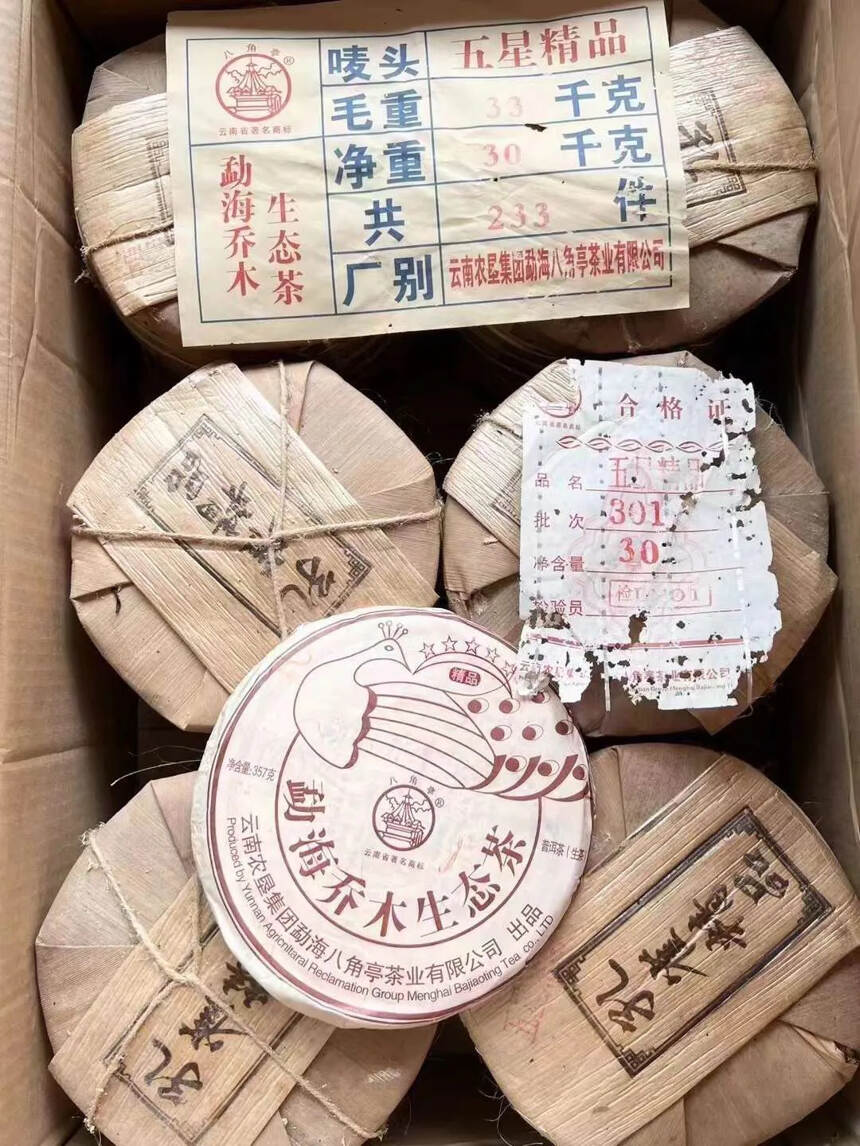 八角亭®
云南省著名商标
唛头 五星精品
毛重 33 千克
净重 30 千克
共 233 件
厂别 云南农垦集团勐海八角亭茶业有限公司
勐海乔木
生态茶
孔
合格证
云南省著名商标
品名 五星精品
批次 301
净含量 30
检验员
精品
净含量:357克
八角亭®
云南省著名商标
普洱茶(生茶
勐海乔木生态茶
云南农垦集团勐海八角亭茶业有限公司 出品
Produced by Yunnan Agricnltaral Reclamation Group Menghai Bajiaoting Tea co., LTD
孔雀精品
孔雀
孔雀精品
五